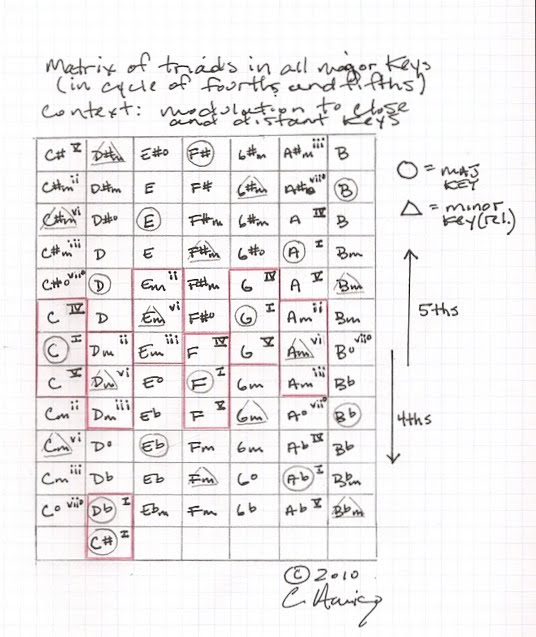 Matrix of triads in all major keys
(in cycle of fourths and fifths)
Context: modulation to close
and distant keys
C# V D#m E#o F# G#m A#m iii B
C#m ii D#m E F# G#m A#o viio B
C#m vi D#o E F#m G#m A IV B
C#m iii D E F#m G#o A I Bm
C#o viio D Em ii F#m G IV A V Bm
C IV D Em vi F#o G I Am ii Bm
C I Dm ii Em iii F IV G V Am vi Bo viio
C V Dm vi Eo F I Gm Am iii Bb
Cm ii Dm iii Eb F V Gm Ao viio Bb
Cm vi Do Eb Fm Gm Ab IV Bb
Cm iii Db Eb Fm Go Ab I Bbm
Co viio Db I Ebm Fm Gb Ab V Bbm
C# I
○ = maj
key
△ = minor
key (rel.)
5ths
4ths
© 2010